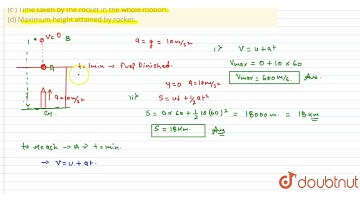 (c) Time taken by the rocket in the whole motion.
(d) Maximum height attained by rocket.
V=0 B
a = g = 10 m/s²
i) V = u + at
t = 1 min → fuel finished.
Vmax = 0 + 10 × 60
A
Vmax = 600 m/s. Ans
u=0 a=10 m/s²
a=10 m/s²
ii) S = ut + ½ at²
S = 0×60 + ½ 10 (60)² = 18000 m. = 18 km
S = 18 km. Ans
to reach → A ⇒ t = 1 min.
→ V = u + at.
doubtnut